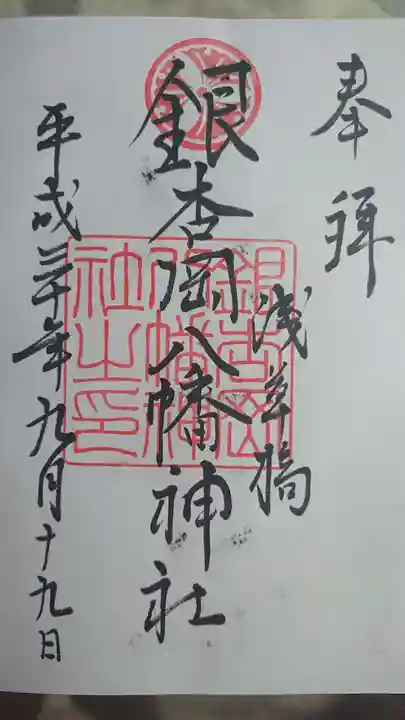 奉拝
浅草橋
銀杏岡八幡神社
平成三十年九月十九日
銀杏岡
八幡神
社之印